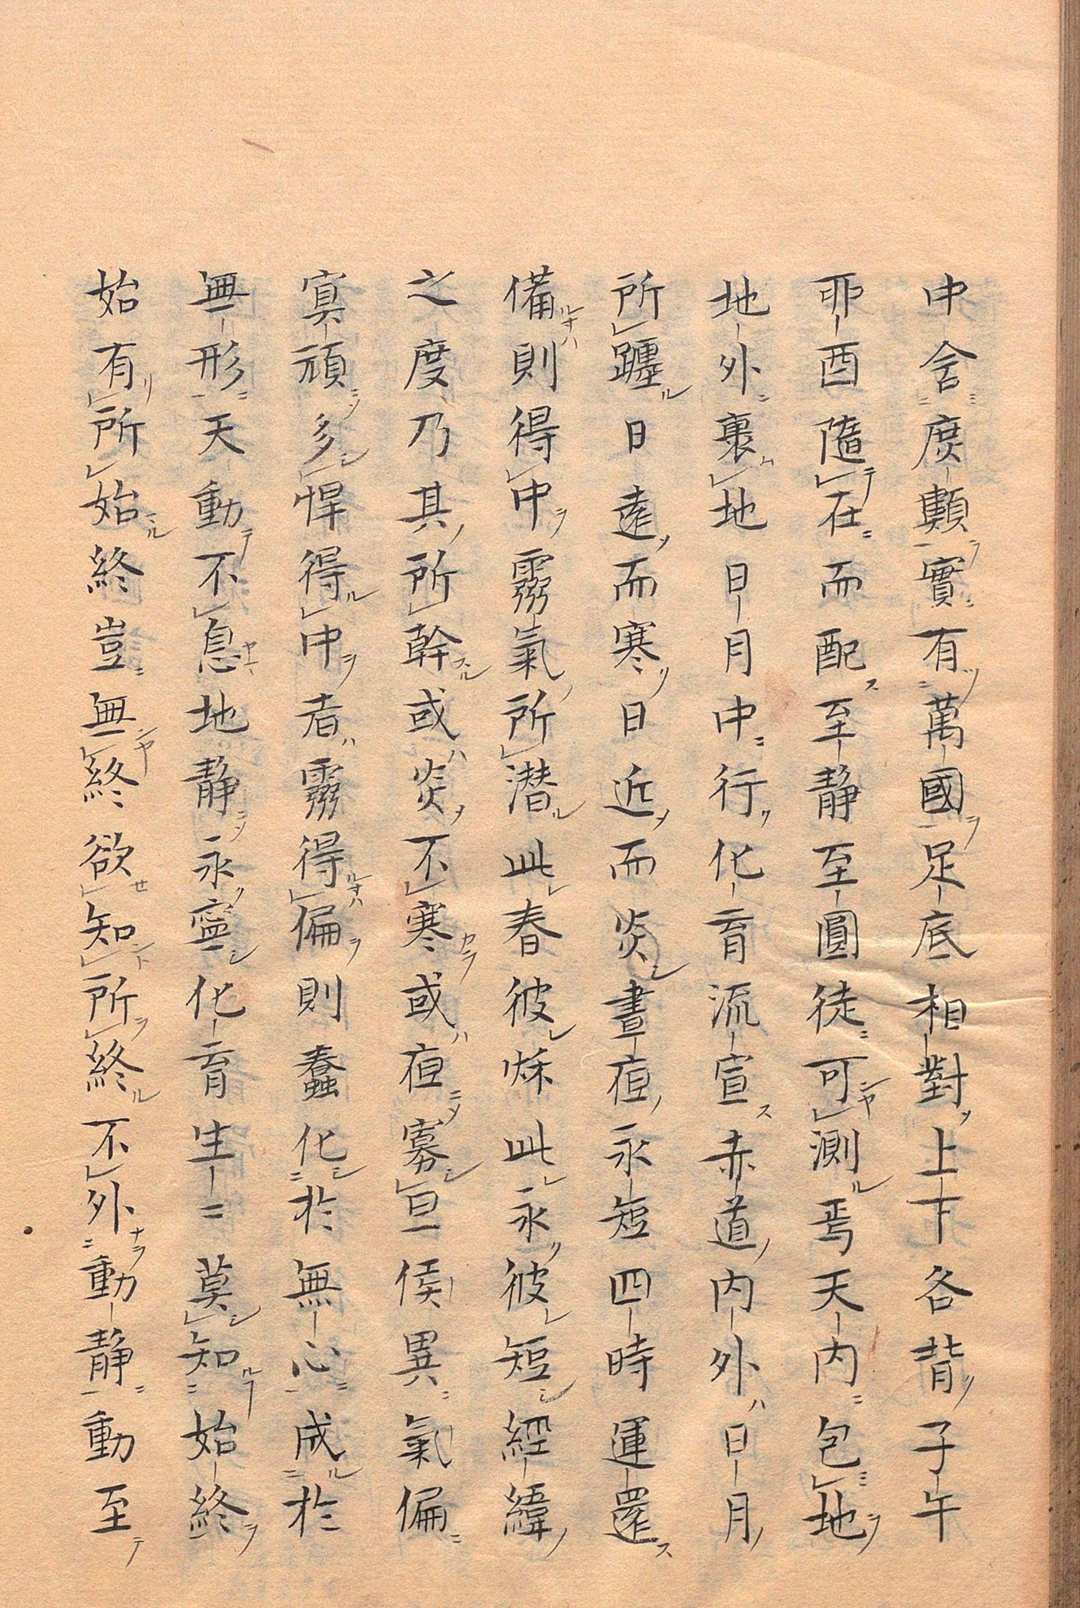 中含庶類實有萬國足底相對上下各背子午
卯酉隨在而配至静至圓徒可測焉天内包地
地外裹地日月中行化育流宣赤道内外日月
所躔日遠而寒日近而炎晝夜永短四時運還
備則得中雰氣所潜此春彼秌此永彼短經緯
之度乃其所幹或炎不寒或夜寡旦侯異氣偏
寘頑多悍得中者雰得偏則蠢化於無心成於
無形天動不息地静永寧化育生〻莫知始終
始有所始終豈無終欲知所終不外動静動至